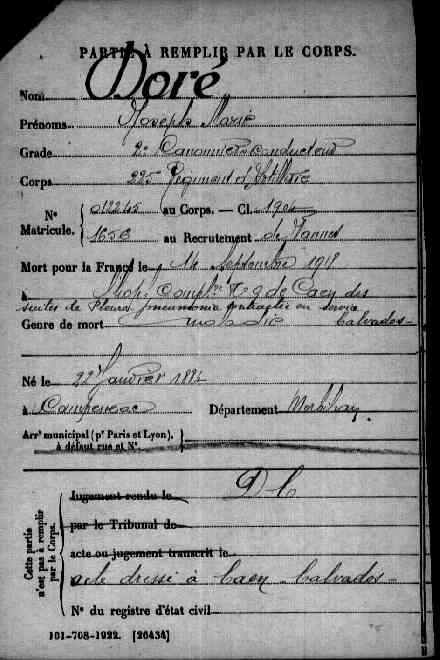 PARTIE À REMPLIR PAR LE CORPS.
Nom Doré
Prénoms Joseph Marie
Grade 2e Canonnier-conducteur
Corps 225 Régiment d'Artillerie
N° Matricule. 012245 au Corps. — Cl. 1904
1650 au Recrutement de Vannes
Mort pour la France le 14 Septembre 1918
à Hop. Compl. N° 9 de Caen des
suites de Pleuro pneumonie contractée en service
Genre de mort maladie Calvados
Né le 22 Janvier 1884
à Campénéac Département Morbihan
Arrt municipal (pr Paris et Lyon).
à défaut rue et N°.
Cette partie n'est pas à remplir par le Corps.
Jugement rendu le D C
par le Tribunal de
acte ou jugement transcrit le
acte dressé à Caen - Calvados -
N° du registre d'état civil
101-708-1922. [26434]